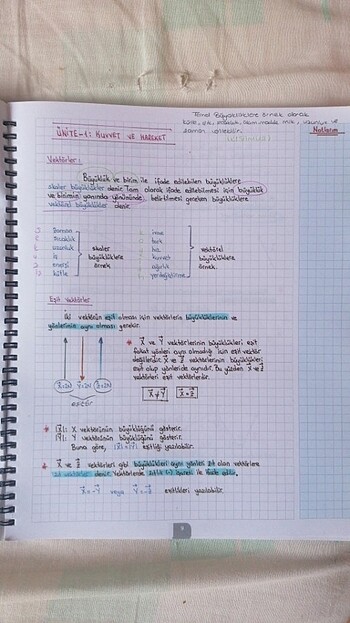 Temel Büyüklüklere örnek olarak
kütle, ışık, sıcaklık, akım, madde mik., uzunluk ve
zaman verilebilir.
ÜNİTE-1: KUVVET VE HAREKET
Notlarım
Vektörler:
Büyüklük ve birim ile ifade edilebilen büyüklüklere
skaler büyüklükler denir. Tam olarak ifade edilebilmesi için büyüklük
ve biriminin yanında yönününde belirtilmesi gereken büyüklüklere
vektörel büyüklükler denir.
zaman
sıcaklık
uzunluk
iş
enerji
kütle
skaler
büyüklüklere
örnek
ivme
tork
hız
kuvvet
ağırlık
yerdeğiştirme
vektörel
büyüklüklere
örnek.
Eşit Vektörler
İki vektörün eşit olması için vektörlerin büyüklüklerinin ve
yönlerinin aynı olması gerekir.
* X ve Y vektörlerinin büyüklükleri eşit
fakat yönleri aynı olmadığı için eşit vektör
değillerdir. X ve Z vektörlerinin büyüklükleri
eşit olup yönleride aynıdır. Bu yüzden X ve Z
vektörleri eşit vektörlerdir.
X≠Y X=Z
eşittir
* |X|: X vektörünün büyüklüğünü gösterir.
|Y|: Y vektörünün büyüklüğünü gösterir.
Buna göre, |X|=|Y| eşitliği yazılabilir.
* X ve Z vektörleri gibi büyüklükleri aynı yönleri zıt olan vektörlere
zıt vektörler denir. Vektörlerde zıtlık (-) işareti ile ifade edilir.
X=-Y veya Y=-Z eşitlikleri yazılabilir.